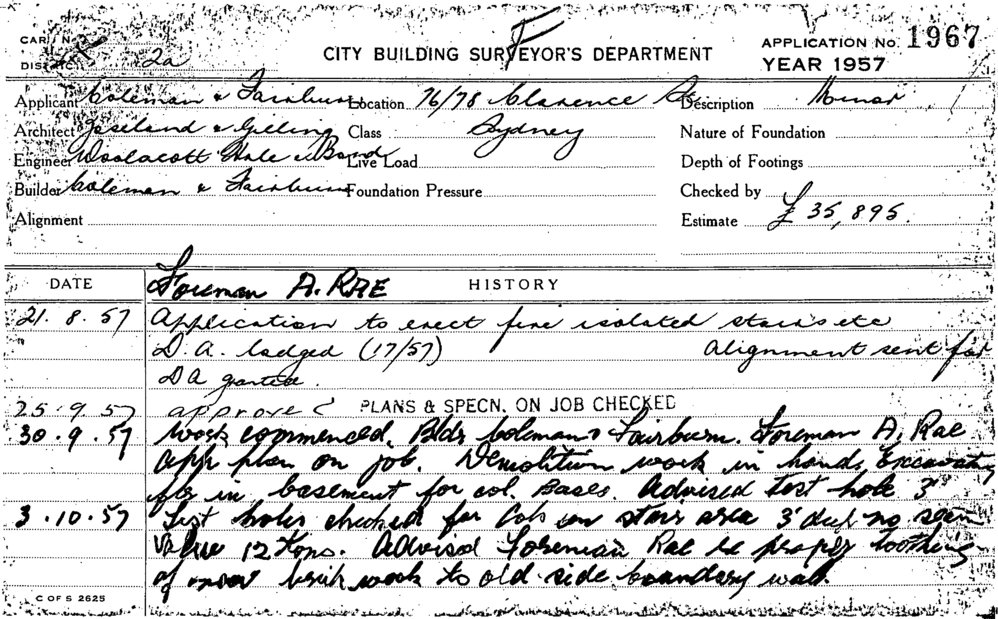 CARD No.
CITY BUILDING SURVEYOR'S DEPARTMENT
APPLICATION No. 1967
DISTRICT 2a
YEAR 1957
Applicant Coleman & Fairburn Location 76/78 Clarence St Description Minor
Architect Joseland & Gilling Class Sydney Nature of Foundation
Engineer Woolacott Hale & Bond Live Load Depth of Footings
Builder Coleman & Fairburn Foundation Pressure Checked by
Alignment Estimate £ 35,895.
DATE Foreman A. RAE HISTORY
21.8.57 Application to erect fire isolated stairs etc
D.A. lodged (17/57) Alignment sent for
DA granted.
25.9.57 approved PLANS & SPECN. ON JOB CHECKED
30.9.57 Work commenced. Bldr Coleman & Fairburn. Foreman A. Rae
App plan on job. Demolition work in hand, Excavating
ftg in basement for col. Bases. Advised test hole 3'
3.10.57 Test holes checked for Cols in stairs area 3' deep no
Value 12 tons. Advised Foreman Rae re toothing
of new brick work to old side boundary wall.
C OF S 2625